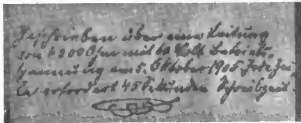 Geschrieben über eine Leitung
von 6000 Ohm mit 60 Volt Betriebs-
spannung am 5. Oktober 1905. Jede Zei-
le erfordert 45 Sekunden Schreibzeit